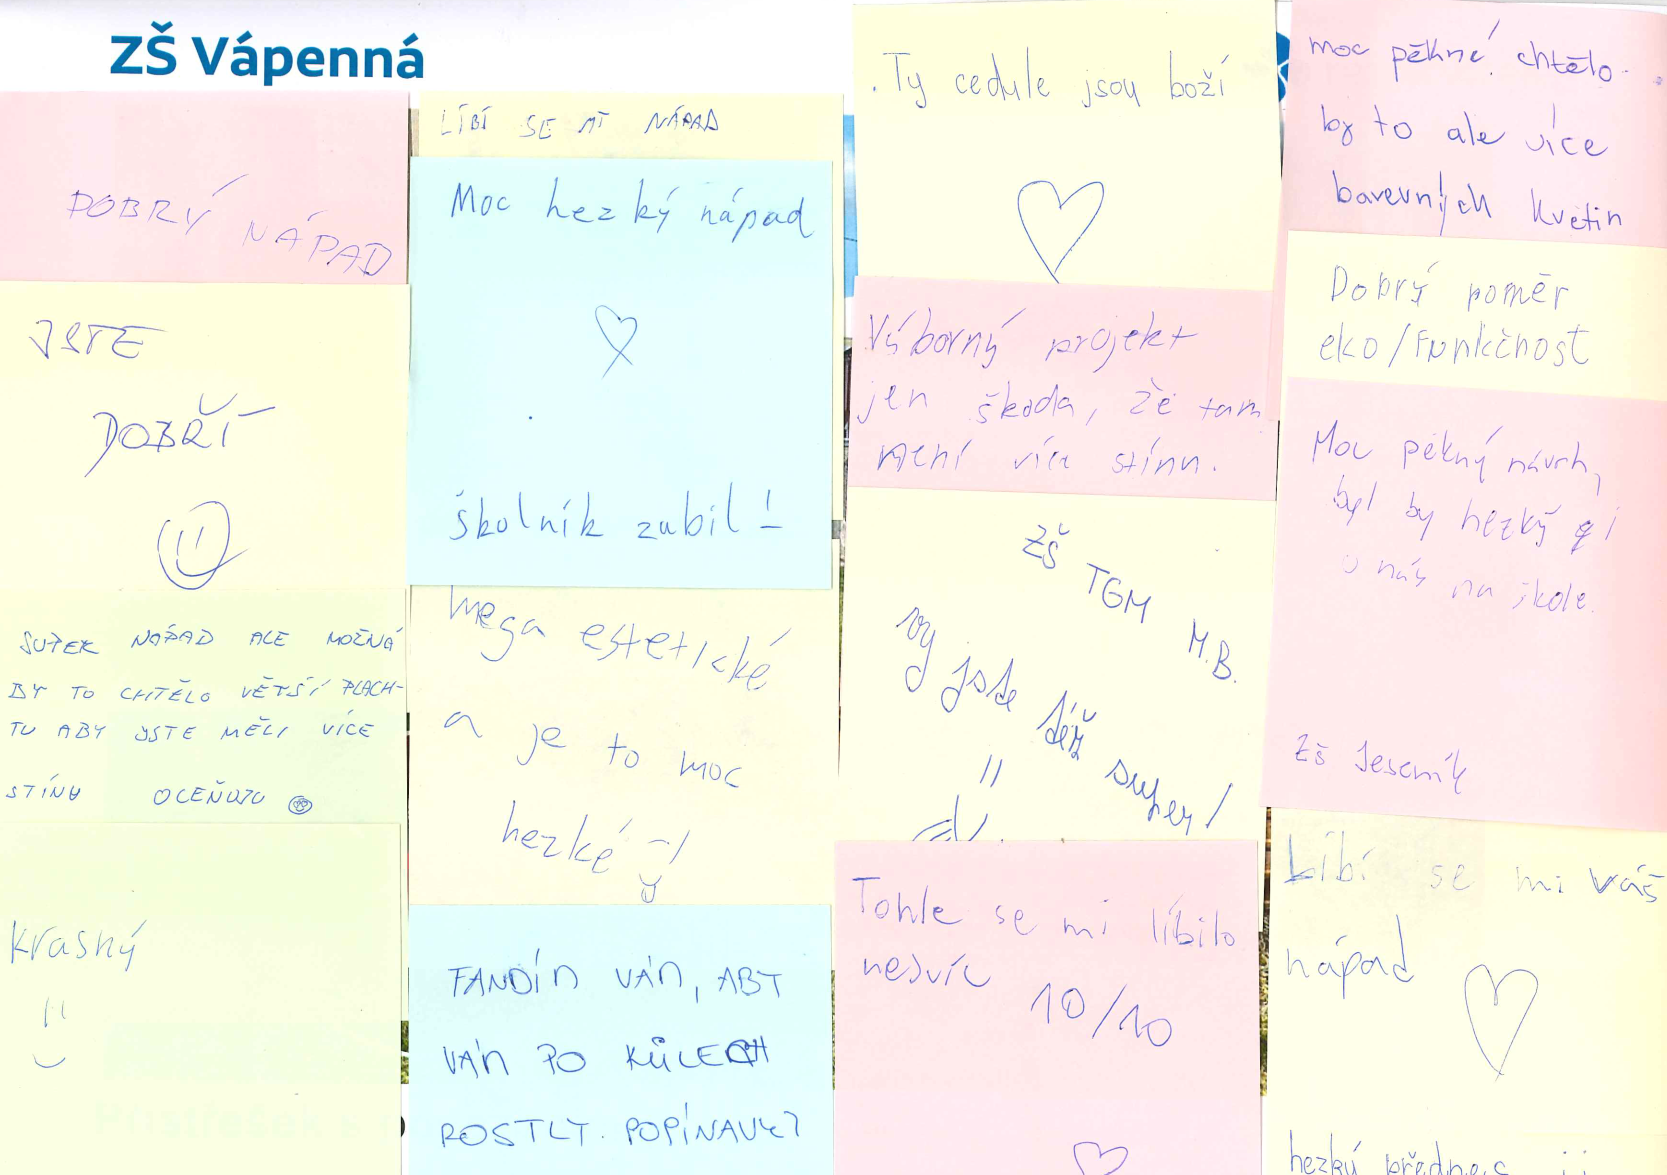 ZŠ Vápenná
DOBRÝ NÁPAD
JSTE
DOBŘÍ
SUPER NÁPAD ALE MOŽNÁ
BY TO CHTĚLO VĚTŠÍ PLACH-
TU ABY JSTE MĚLI VÍCE
STÍNU OCEŇUJU
Krasný
LÍBÍ SE MI NÁPAD
Moc hezký nápad
školník zubil!
mega estetické
a je to moc
hezké :)
FANDÍM VÁM, ABY
VÁM PO KŮLECH
ROSTLY POPÍNAVKY
Ty cedule jsou boží
Výborný projekt
jen škoda, že tam
není více stínu.
ZŠ TGM M.B.
vy jste též super!
Tohle se mi líbilo
nejvíc 10/10
moc pěkné! chtělo
by to ale více
barevných květin
Dobrý poměr
eko/funkčnost
Moc pěkný návrh,
byl by hezký i
u nás na škole.
ZŠ Jeseník
Líbí se mi váš
nápad
hezký přednes